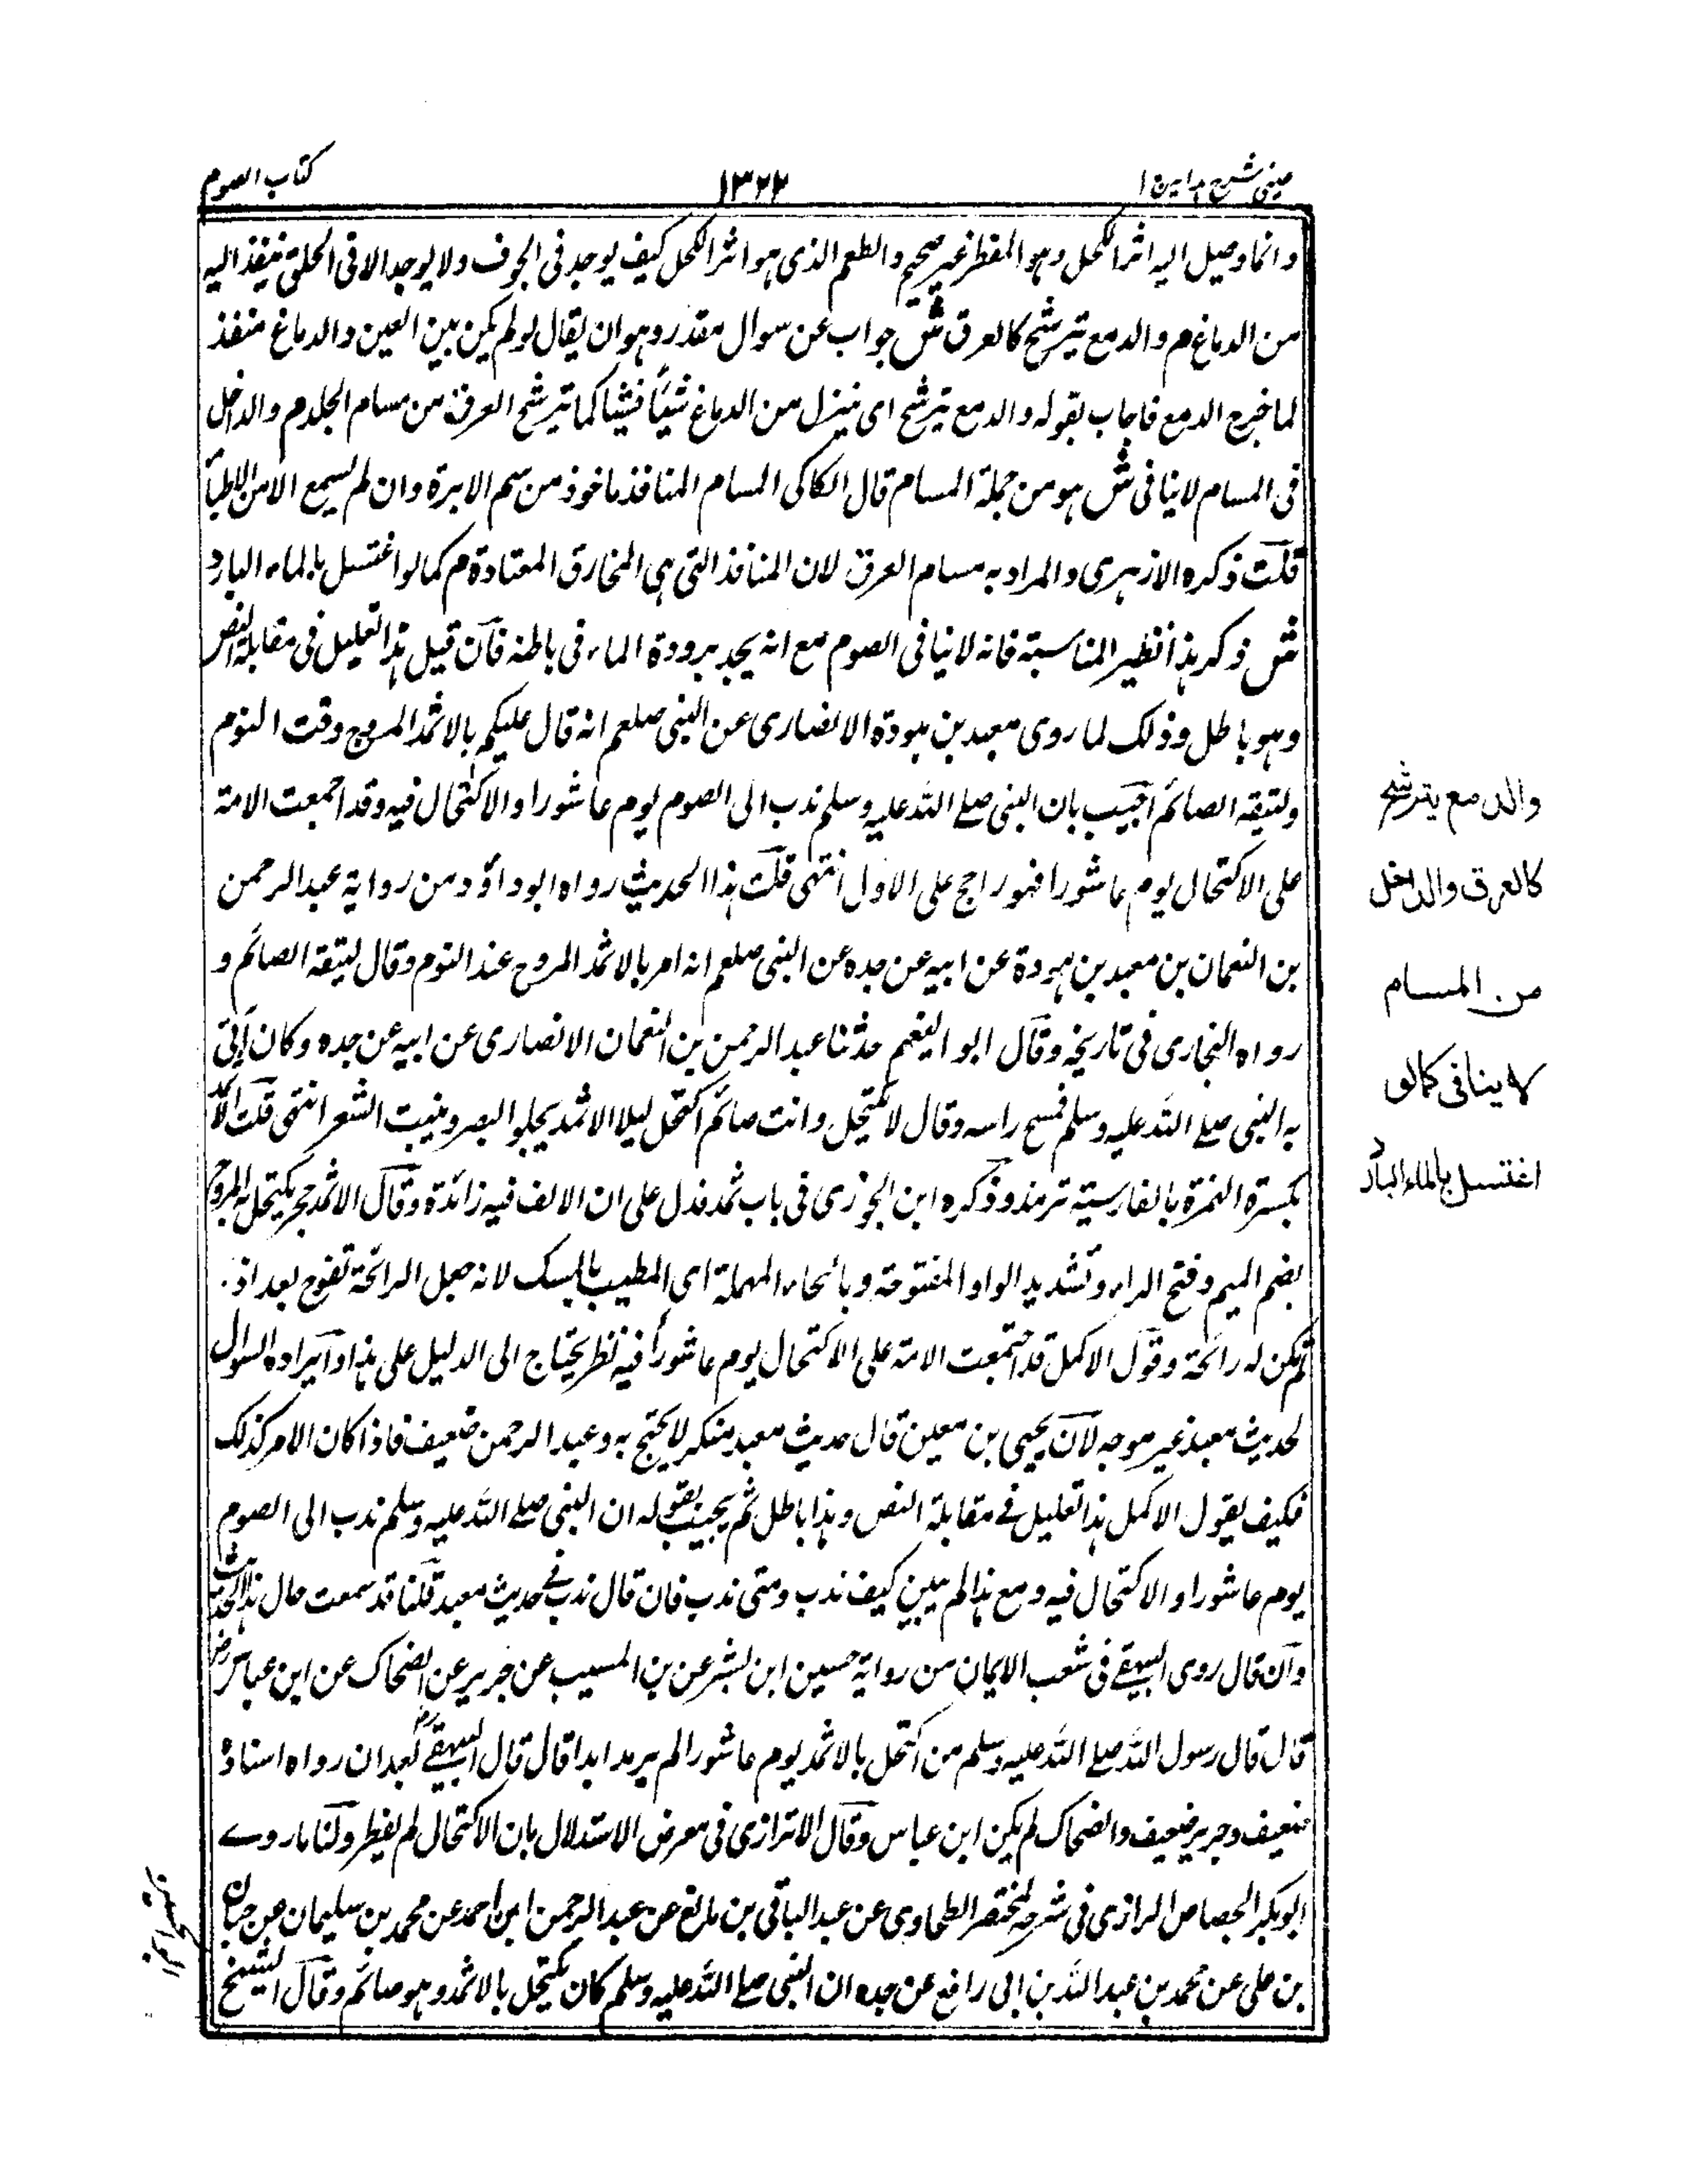 عینی شرح ہدایہ ج ۱
۱۳۲۲
کتاب الصوم
وانما وصل الیہ اثر الکحل وہو المفطر غیر صحیح والطعم الذی ہو اثر الکحل کیف یوجد فی الجوف ولا یوجد الا فی الحلق منفذ الیہ
من الدماغ م والدمع یترشح کالعرق ش جواب عن سوال مقدر وہو ان یقال لو لم یکن بین العین والدماغ منفذ
لما خرج الدمع فاجاب بقولہ والدمع یترشح ای ینزل من الدماغ شیئاً فشیئا کما یترشح العرق من مسام الجلد م والداخل
فی المسام لا ینافی ش ہو من جملۃ المسام قال الکاکی المسام المنافذ ماخوذ من سم الابرۃ وان لم یسمع الا من الاطباء
قلت ذکرہ الازہری والمراد بہ مسام العرق لان المنافذ التی ہی المخارق المعتادۃ م کما لو اغتسل بالماء البارد
ش ذکر ہذا نظیر المناسبۃ فانہ لا ینافی الصوم مع انہ یجد برودۃ الماء فی باطنہ فان قیل ہذا تعلیل فی مقابلۃ النص
وہو باطل وذلک لما روی معبد بن ہودۃ الانصاری عن النبی صلعم انہ قال علیکم بالاثمد المروح وقت النوم
ولیتقہ الصائم اجیب بان النبی صلے اللہ علیہ وسلم ندب الی الصوم یوم عاشورا والاکتحال فیہ وقد اجمعت الامۃ
علی الاکتحال یوم عاشورا فہو راجح علی الاول انتہی قلت ہذا الحدیث رواہ ابو داؤد من روایۃ عبد الرحمن
بن النعمان بن معبد بن ہودۃ عن ابیہ عن جدہ عن النبی صلعم انہ امر بالاثمد المروح عند النوم وقال لیتقہ الصائم و
رواہ البخاری فی تاریخہ وقال ابو النعیم حدثنا عبد الرحمن بن النعمان الانصاری عن ابیہ عن جدہ وکان اتی
بہ النبی صلے اللہ علیہ وسلم فمسح راسہ وقال لا تکتحل وانت صائم اکتحل لیلا الاثمد یجلو البصر وینبت الشعر انتہی قلت الاثمد
بکسرۃ الہمزۃ بالفارسیۃ ترمذ وذکرہ ابن الجوزی فی باب ثمد فدل علی ان الالف فیہ زائدۃ وقال الاثمد حجر یکتحل بہ المروح
بضم المیم وفتح الراء وتشدید الواو المفتوحۃ وبالحاء المہملۃ ای المطیب بالمسک لانہ جعل الرائحۃ تفوح بعد اذ
لم تکن لہ رائحۃ وقول الاکمل قد اجتمعت الامۃ علی الاکتحال یوم عاشوراً فیہ نظر یحتاج الی الدلیل علی ہذا وایرادہ السوال
لحدیث معبد غیر موجہ لان یحیی بن معین قال حدیث معبد منکر لا یحتج بہ وعبد الرحمن ضعیف فاذا کان الامر کذلک
فکیف یقول الاکمل ہذا تعلیل فے مقابلۃ النص وہذا باطل ثم یجیب بقولہ ان النبی صلے اللہ علیہ وسلم ندب الی الصوم
یوم عاشورا والاکتحال فیہ ومع ہذا لم یبین کیف ندب ومتی ندب فان قال ندب فے حدیث معبد قلنا قد سمعت حال ہذا الحدیث
وان قال روی البیہقے فی شعب الایمان من روایۃ حسین ابن بشر عن بن المسیب عن جریر عن الضحاک عن ابن عباس رض
قال قال رسول اللہ صلے اللہ علیہ وسلم من اکتحل بالاثمد یوم عاشورا لم یرمد ابدا قال قال البیہقے بعد ان رواہ اسنادہ
ضعیف وجریر ضعیف والضحاک لم یکن ابن عباس وقال الاترازی فی معرض الاستدلال بان الاکتحال لم یفطر ولنا ما روے
ابو بکر الجصاص الرازی فی شرحہ لمختصر الطحاوی عن عبد الباقی بن مانع عن عبد الرحمن ابن احمد عن محمد بن سلیمان عن حبان
بن علی عن محمد بن عبد اللہ بن ابی رافع عن جدہ ان النبی صلے اللہ علیہ وسلم کان یکتحل بالاثمد وہو صائم وقال الشیخ
والدمع یترشح
کالعرق والداخل
من المسام
لا ینافی کما لو
اغتسل بالماء البارد